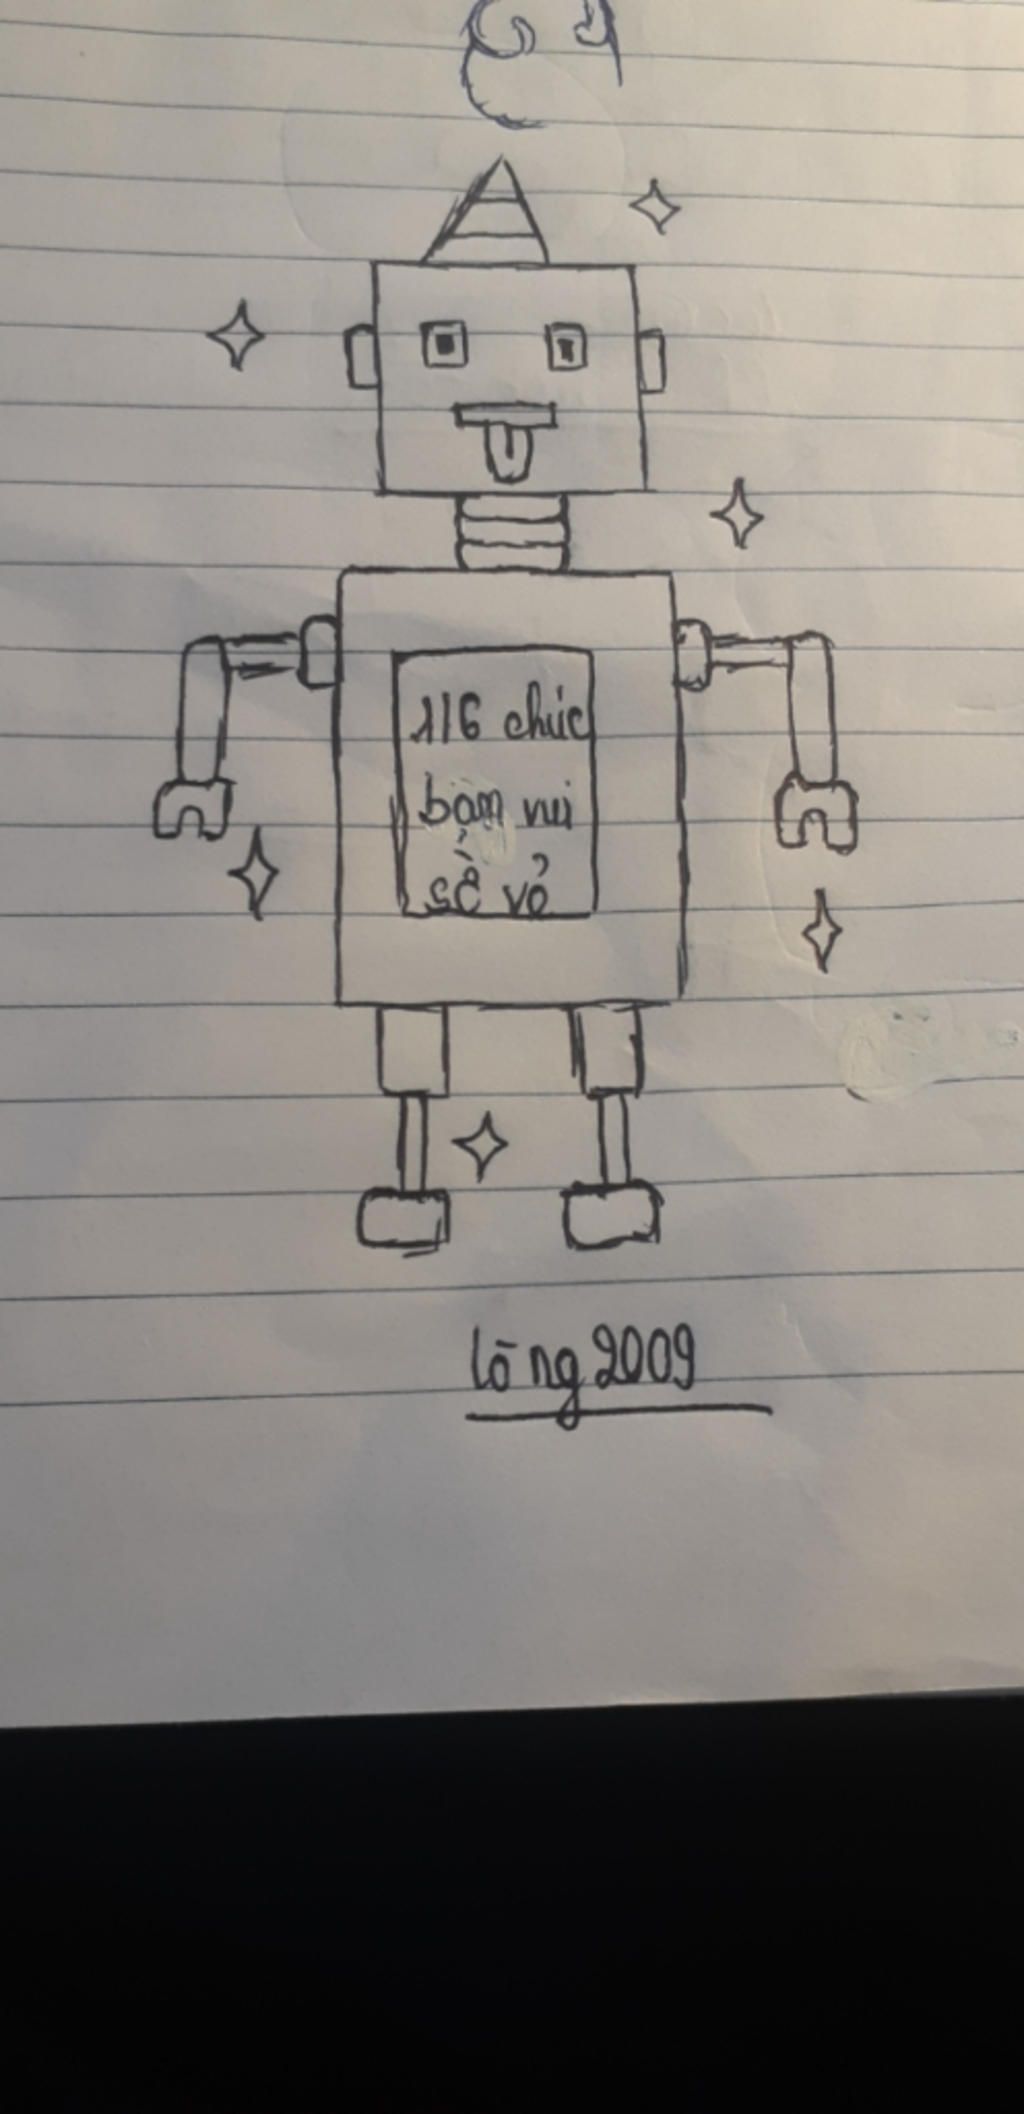 116 chúc
bạn vui
sẻ vẻ
lō ng 2009